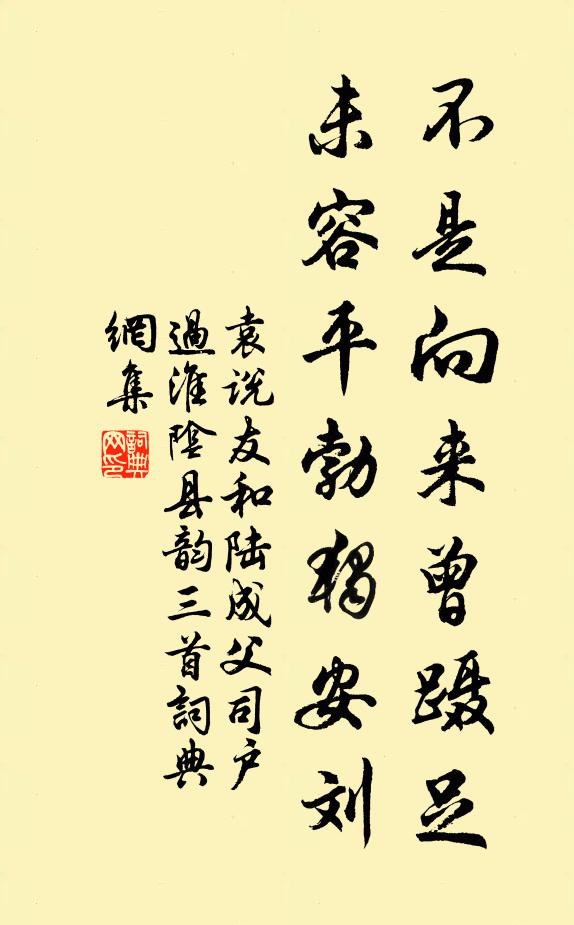 不是向来曾蹑足
未容平勃独安刘
袁说友和陆成父司户
過淮陰县韵三首詞典
網集
詞典
网印